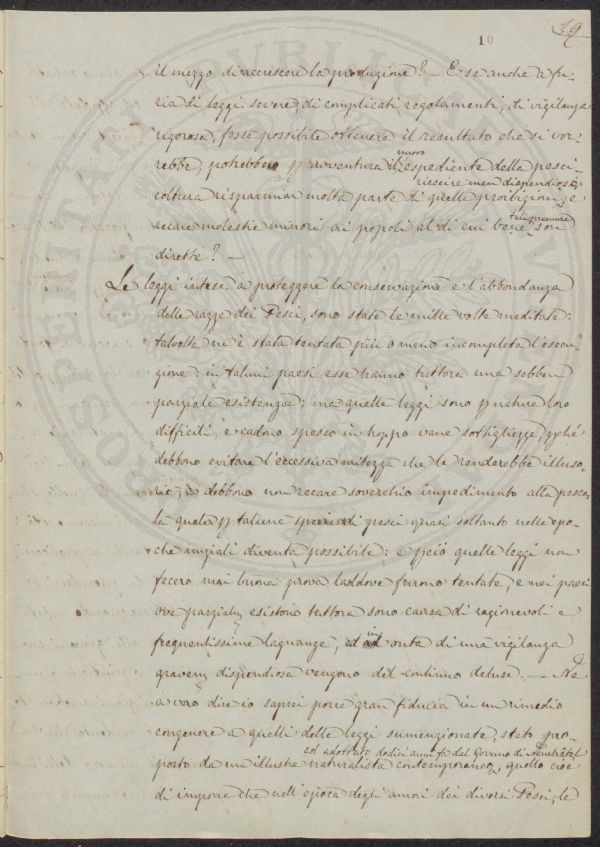 10
il mezzo di accrescere la produzione? — E se anche a fu-
ria di leggi severe, di complicati regolamenti, di vigilanza
rigorosa, fosse possibile ottenere il resultato che si vor-
rebbe, potrebbe p avventura il nuovo espediente della pesci-
riescire men dispendioso,
coltura risparmiar molta parte di quelle proibizioni, e
recare molestie minori ai popoli al di cui bene son
dirette? —
Le leggi intese a proteggere la conservazione e l'abbondanza
delle razze dei Pesci, sono state le mille volte meditate:
talvolta ne è stata tentata più o meno incompleta l'esecu-
zione: in taluni paesi esse hanno tuttora una sebben
parziale esistenza; ma quelle leggi sono p natura loro
difficili, e cadono spesso in troppo vane sottigliezze, pché
debbono evitare l'eccessiva mitezza che le renderebbe illuso-
rie, e debbono non recare soverchio impedimento alla pesca,
la quale p talune specie di pesci quasi soltanto nelle epo-
che inziali diventa possibile: e pciò quelle leggi non
fecero mai buona prova laddove furono tentate, e nei paesi
ove parzialm esistono tuttora sono causa di ragionevoli e
frequentissime lagnanze, ed in onta di una vigilanza
gravem dispendiosa vengono del continuo deluse. — Nè
a vero dire io saprei porre gran fiducia in un rimedio
congenere a quelli delle leggi summenzionate, stato pro-
ed adottato dodici anni fa dal Governo di Neuchâtel
posto da un illustre naturalista contemporaneo, quello cioè
di imporre che nell'epoca degli amori dei diversi Pesci, le